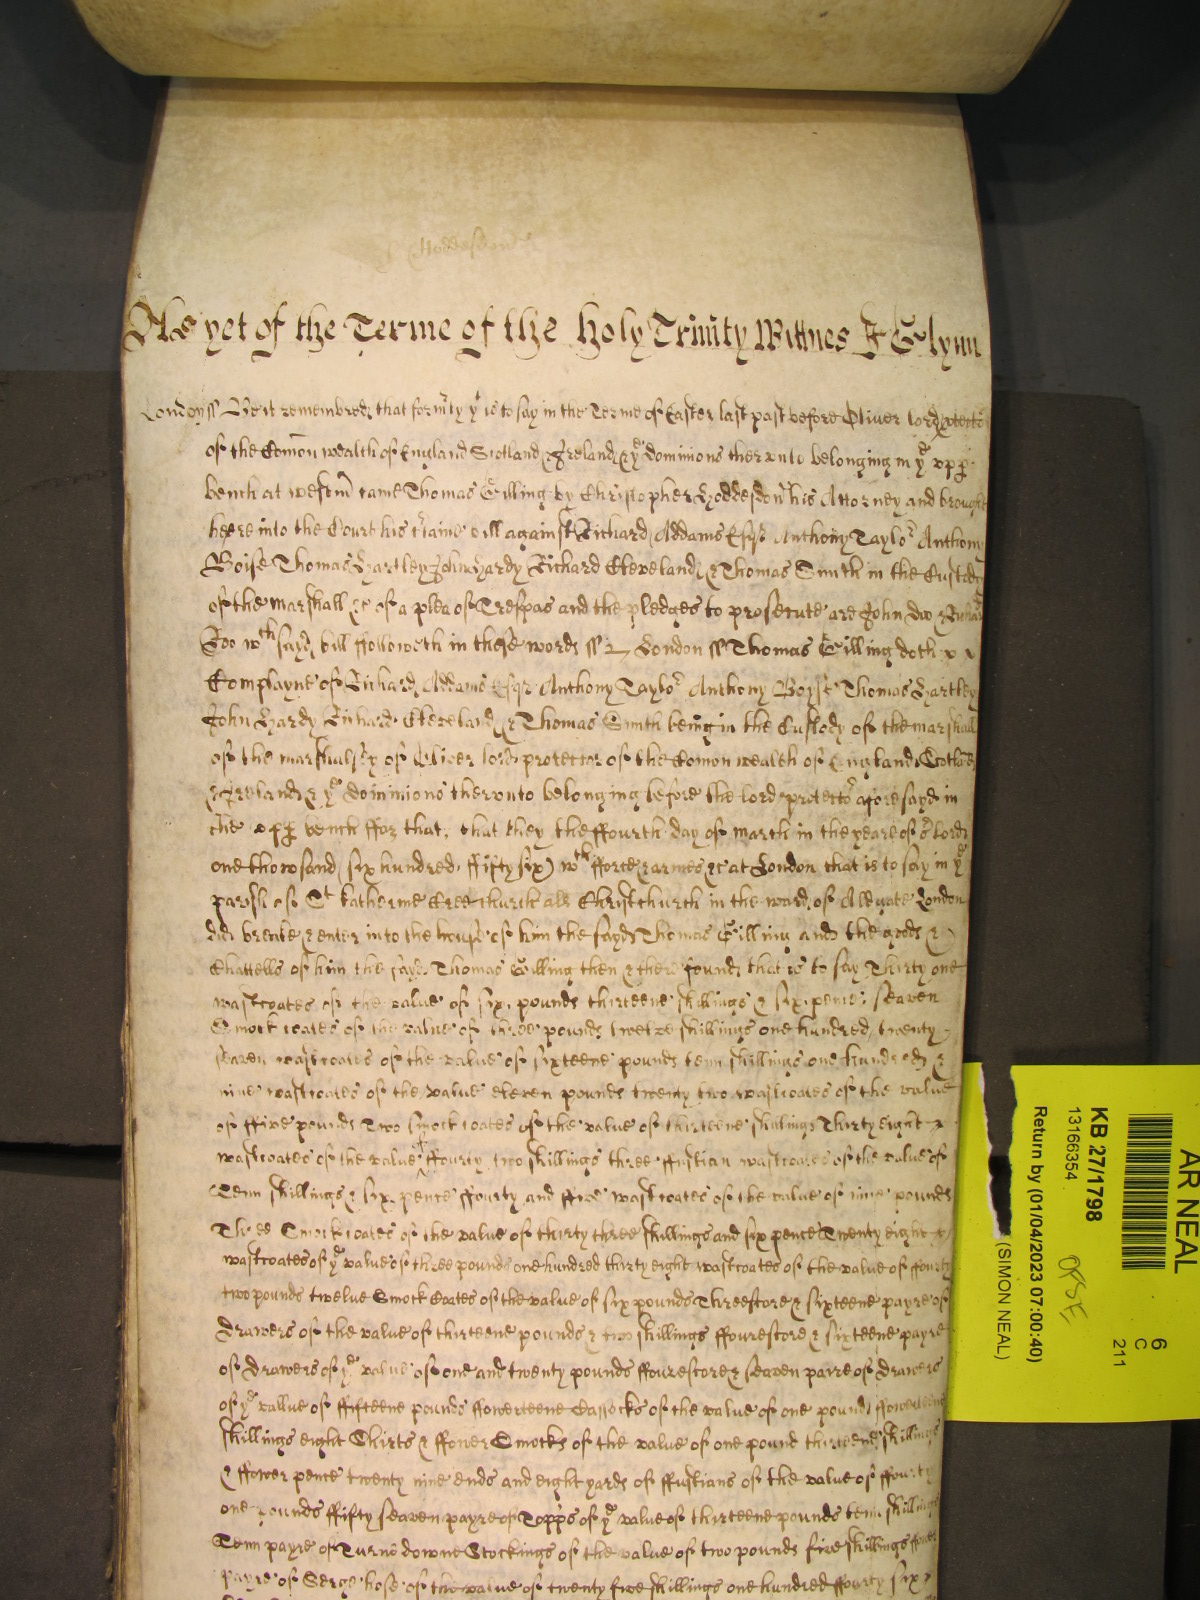 Hoddesdon
As yet of the Terme of the holy Trinity Wittnes J Glynn
London ss Be it remembred that form̄ly yt is to say in the Terme of Easter last past before Oliver lord
of the Com̄on wealth of England Scotland & Ireland & ye dominions therunto belonging in ye upp
bench at westm̄ came Thomas Gilling by Christopher Hoddesdon his Attorney and brought
heere into the Court his c̄taine bill against Richard Addams Esqr Anthony Taylor Anthony
Boise Thomas Hartley John Hardy Richard Cleveland & Thomas Smith in the Custody
of the marshall &c of a plea of Trespas and the pledges to prosecute are John Dw & Richard
Roo wch sayd bill ffolloweth in these words ss London ss Thomas Gilling doth x x
Complayne of Richard Addams Esqr Anthony Taylor Anthony Boyse Thomas Hartley
John Hardy Richard Cleveland & Thomas Smith being in the Custody of the marshall
of the marshalsey of Oliver lord protector of the Comon wealth of England Scotland
& Ireland & ye dominions therunto belonging before the lord protector aforesayd in
the upp bench ffor that, that they the ffourth day of march in the yeare of or Lord
one thowsand six hundred ffifty six wth fforce & armes &c at London that is to say in ye
parish of St Katherine Cree church als Christ church in the ward of Aldgate London
did breake & enter into the house of him the sayd Thomas Gilling and the goods &
Chattells of him the sayd Thomas Gilling then & there found that is to say Thirty one
wastcoates of the value of six pounds thirteene shillings & six pence seaven
Smock coates of the value of three pounds twelve shillings one hundred twenty
seaven wastcoates of the value of sixteene pounds tenn shillings one hundred &
nine wastcoates of the value eleven pounds twenty two wastcoates of the value
of ffive pounds Two smock coates of the value of thirteene shillings Thirty eight x
wastcoates of the value ffourty two shillings three ffustian wastcoates of the value of
Tenn shillings & six pence ffourty and ffive wastcoates of the value of nine pounds
Three Smock coates of the value of thirty three shillings and six pence Twenty eight
wastcoates of ye value of three pounds one hundred thirty eight wastcoates of the value of ffourty
two pounds twelve Smock Coates of the value of six pounds Threescore & sixteene payre of
drawers of the value of thirteene pounds & two shillings ffourescore & sixteene payre
of drawers of ye value of one and twenty pounds ffourescore & seaven payre of drawers
of ye vallue of ffifteene pounds ffowerteene Cassocks of the value of one pound ffowerteene
shillings eight Shirts & ffower Smocks of the value of one pound thirteene shillings
& ffower pence twenty nine ends and eight yards of ffustians of the value of ffourty
one pounds ffifty seaven payre of Topps of ye value of thirteene pounds tenn shillings
Tenn payre of Turne downe Stockings of the value of two pounds five shillings ffower
payre of Serge hose of the value of twenty five shillings one hundred ffourty six
AR NEAL
KB 27/1798
13166354
Return by (01/04/2023 07:00:40)
(SIMON NEAL)
6
C
211